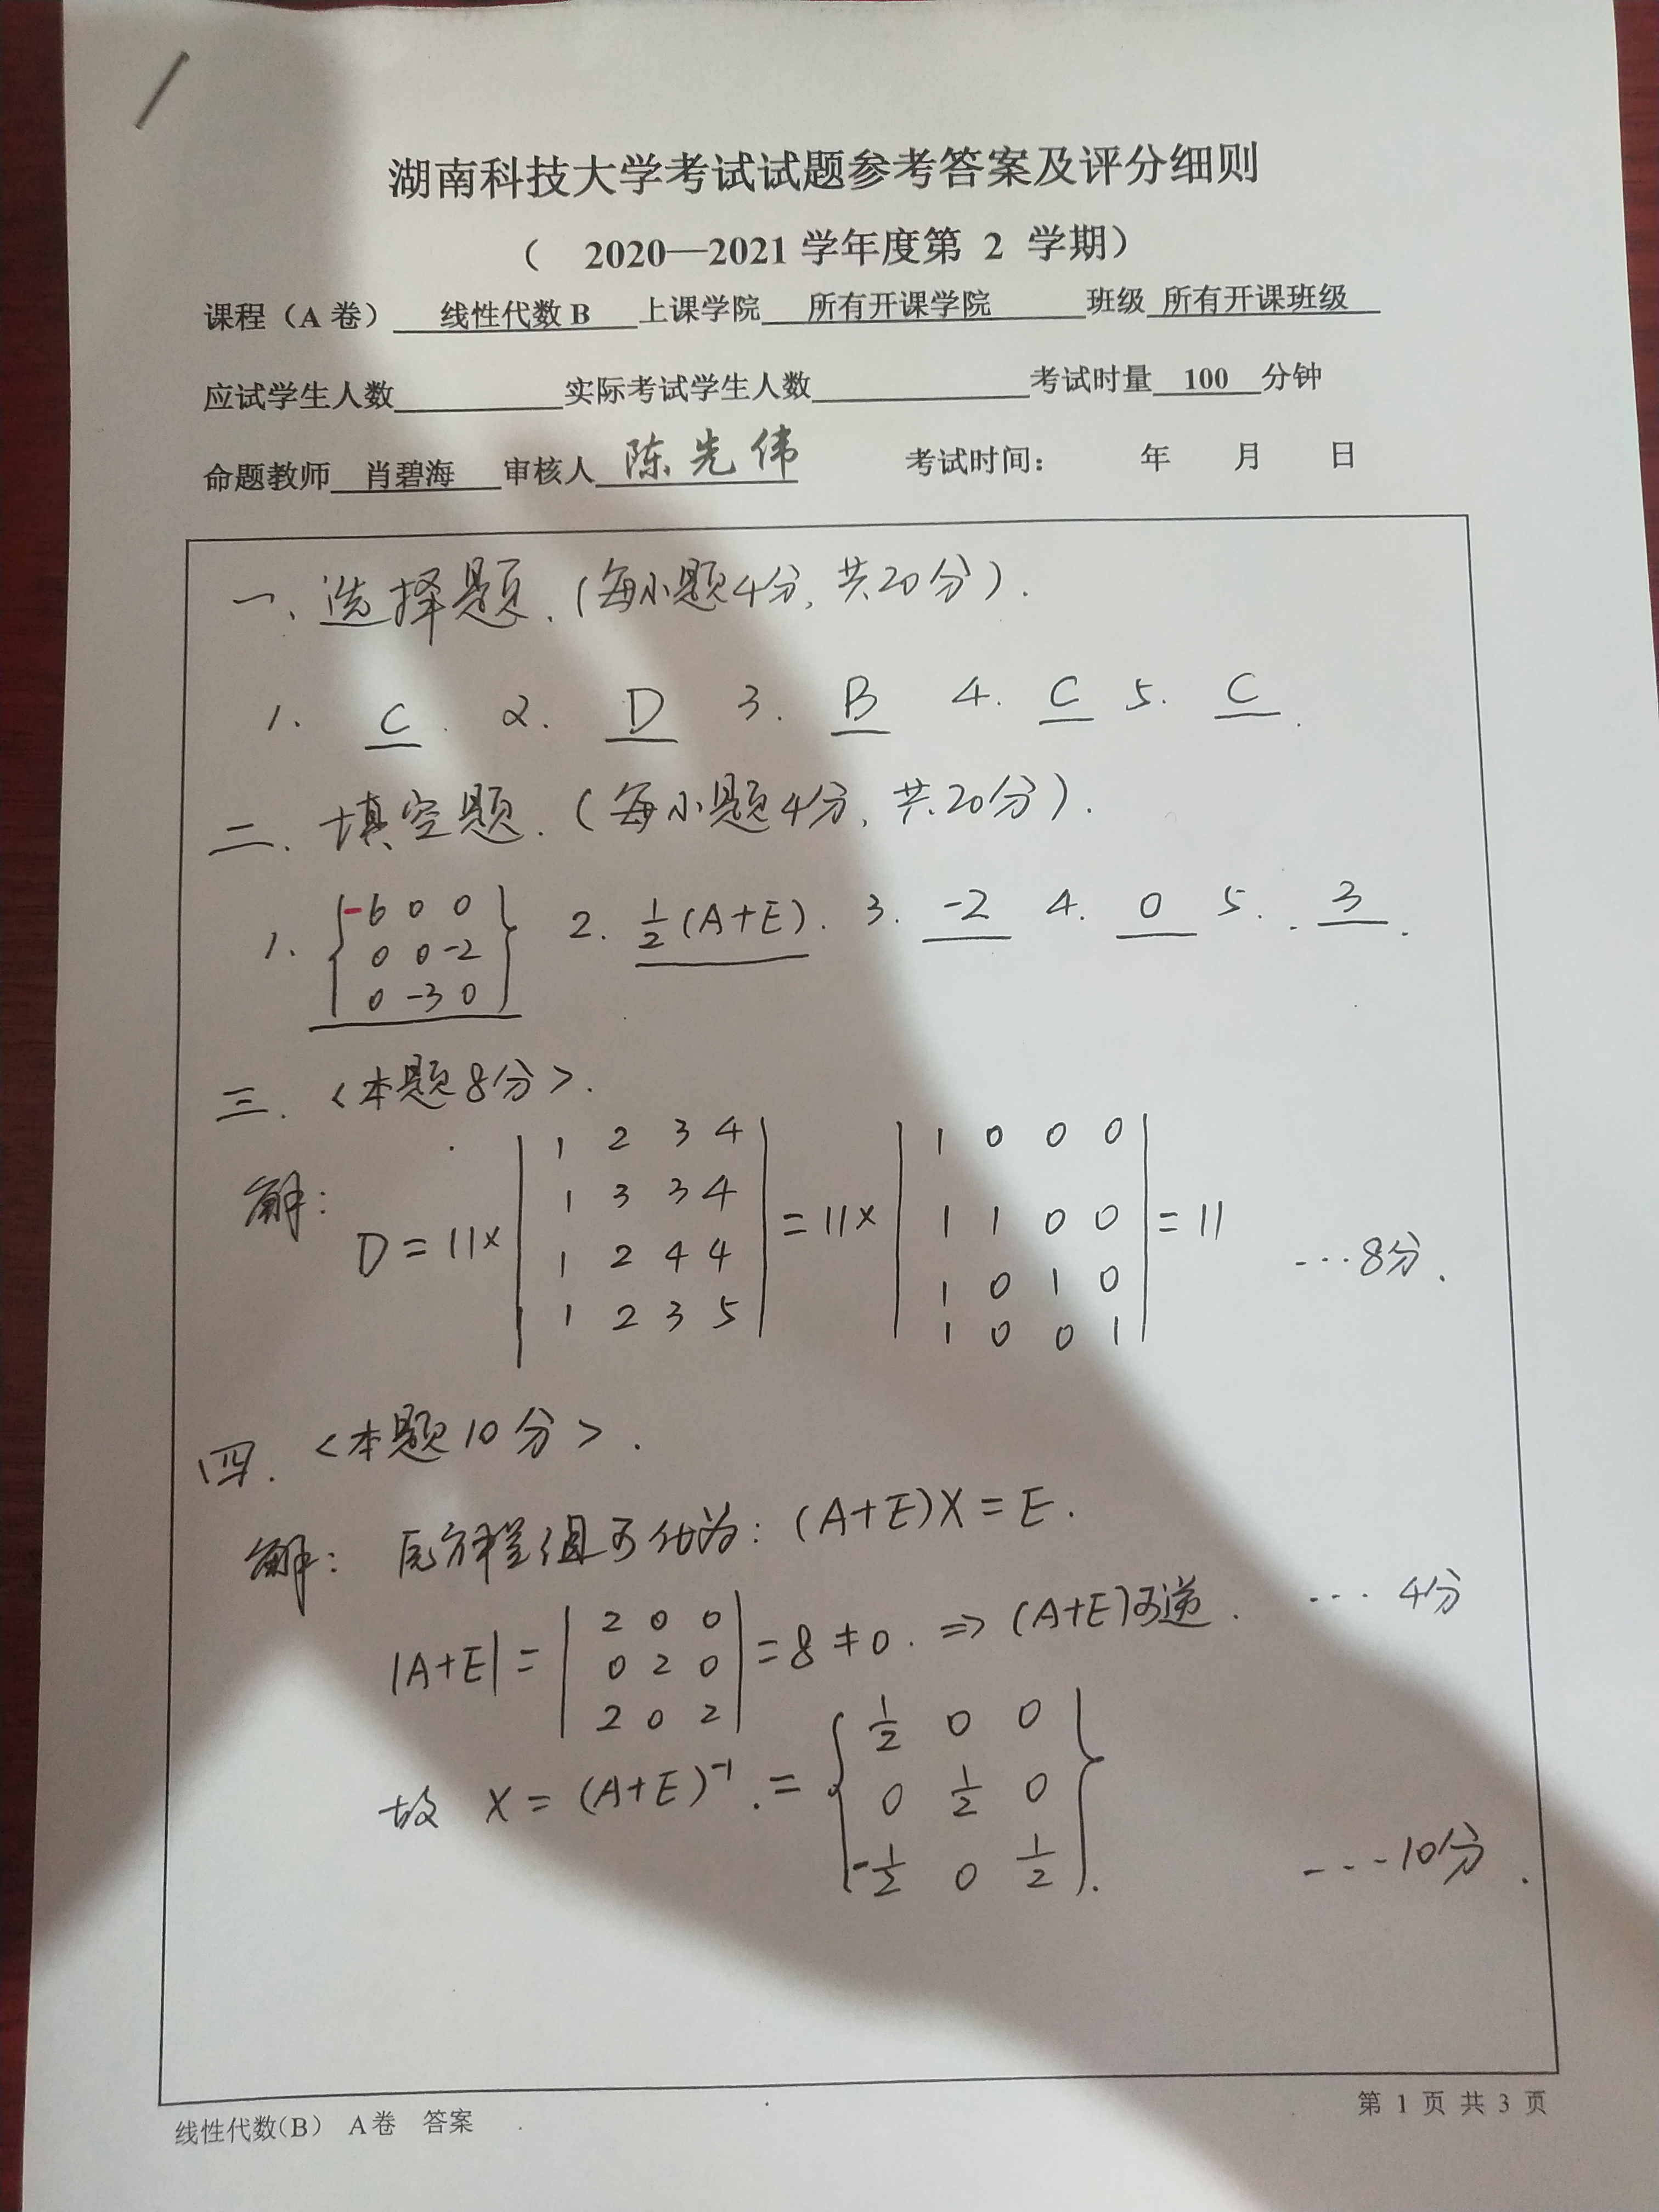 湖南科技大学考试试题参考答案及评分细则
（ 2020—2021 学年度第 2 学期）
课程（A 卷） 线性代数 B 上课学院 所有开课学院 班级 所有开课班级
应试学生人数 实际考试学生人数 考试时量 100 分钟
命题教师 肖碧海 审核人 陈先伟 考试时间： 年 月 日
一、选择题.(每小题4分,共20分).
1. C. 2. D 3. B 4. C 5. C.
二. 填空题.(每小题4分,共20分).
1. {-6 0 0
0 0 -2
0 -3 0} 2. 1/2(A+E). 3. -2 4. 0 5. 3.
三. <本题8分>.
解: D=11×|1 2 3 4
1 3 3 4
1 2 4 4
1 2 3 5| =11×|1 0 0 0
1 1 0 0
1 0 1 0
1 0 0 1| =11 ...8分.
四. <本题10分>.
解: 原方程组可化为: (A+E)X=E.
|A+E|=|2 0 0
0 2 0
2 0 2| =8≠0. ⇒(A+E)可逆. ... 4分
故 X=(A+E)⁻¹.={1/2 0 0
0 1/2 0
-1/2 0 1/2}. ...10分.
线性代数(B) A卷 答案
第 1 页 共 3 页